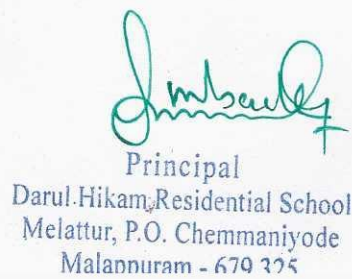 Principal
Darul Hikam Residential School
Melattur, P.O. Chemmaniyode
Malappuram - 679 325